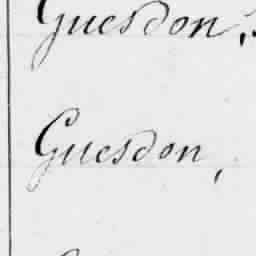 Guesdon,
Guesdon,